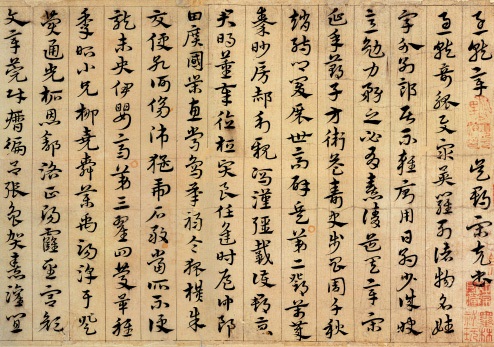 急就章 吳郡宋克書
急就奇觚與衆異羅列諸物名姓
字分別部居不雜廁用日約少誠快
意勉力務之必有憙請道其章宋
延年鄭子方衛益壽史步昌周千秋
趙孺卿爰展世高辟兵第二鄧萬歲
秦眇房郝利親馮漢彊戴護郡景
君明董奉德桓賢良任逢時侯仲郎
由廣國榮惠常烏承祿令狐橫朱
交便孔何傷師猛虎石敢當所不侵
龍未央伊嬰齊第三翟回慶畢稚
季昭小兄柳堯舜藥禹湯淳于登
費通光柘恩舒路正陽霍聖宮顏
文章莞財歷偏呂張魯賀憙灌宜